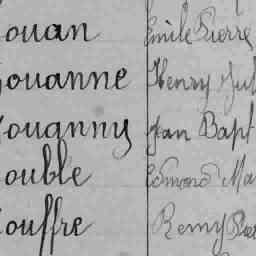 ouan Emile Pierre
ouanne Henry Jul
ouanny Jean Bapt
ouble Edmond Ma
ouffre Remy